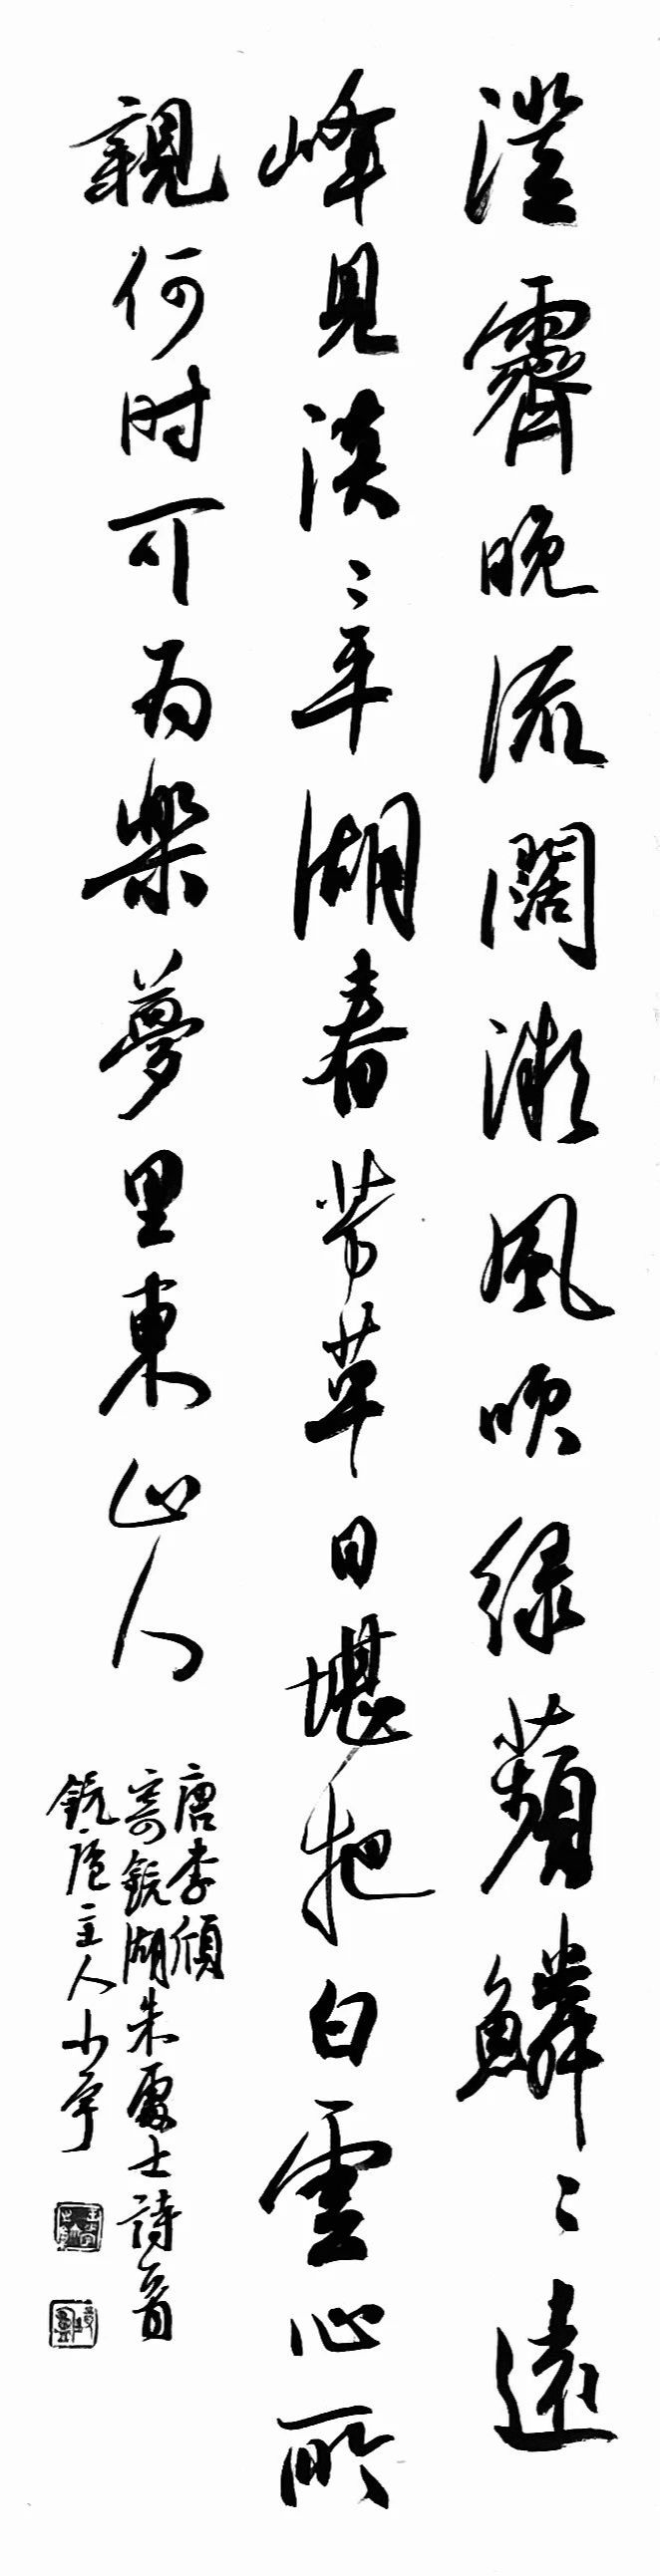 澄霽晚流闊微風吹绿蘋鱗〻遠
峰見淡〻平湖春芳草日堪把白雲心所
親何时可为樂夢里東山人
唐李頎
寄鏡湖朱處士詩首
主人小平